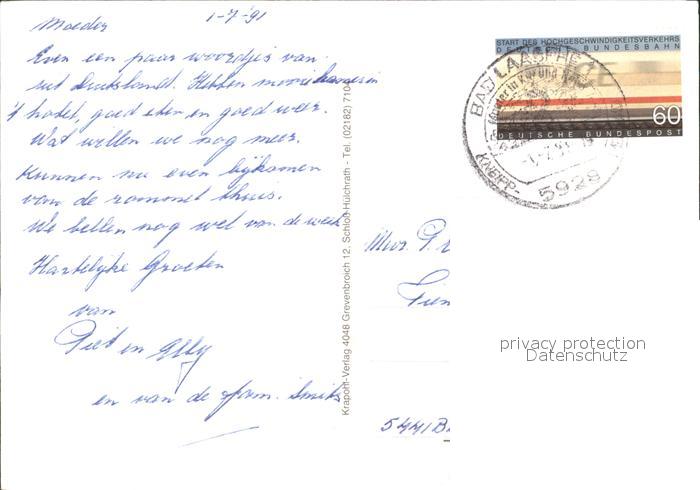 Moeder 1-7-'91
Even een paar woordjes van.
uit Duitsland. Hebben mooie kamers in
't hotel, goed eten en goed weer.
Wat willen we nog meer.
Kunnen nu even bijkomen
van de rommel thuis.
We bellen nog wel van de week
Hartelijke Groeten
van
Piet en
en van de fam. Smit
Krapohl-Verlag 4048 Grevenbroich 12, Schloß Hülchrath - Tel. (02182) 7104
START DES HOCHGESCHWINDIGKEITSVERKEHRS
DEUTSCHE BUNDESBAHN
60
DEUTSCHE BUNDESPOST
BAD LAASPHE 1
KNEIPP-
5928
Mevr. P.
Tien
5441 B
privacy protection
Datenschutz